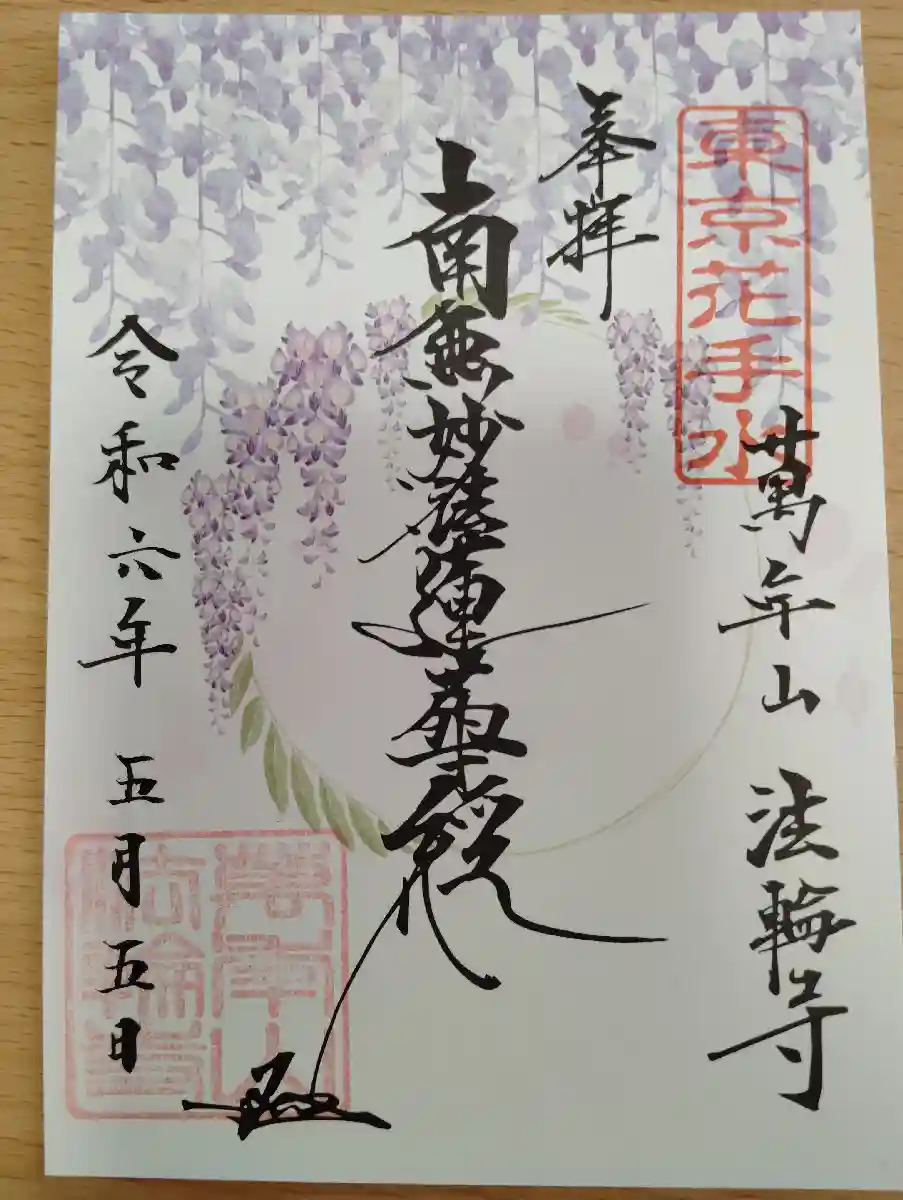 東京花手水
奉拝
萬年山 法輪寺
南無妙法蓮華経
令和六年 五月五日
萬年山
法輪寺